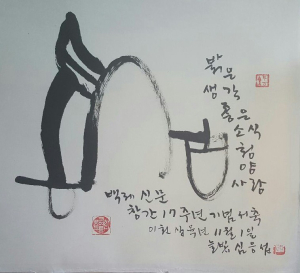 밝은
생각
좋은
소식
청양
사람
백제신문
창간 17주년 기념 서축
이천십육년 11월 1일
늘빛 심응섭